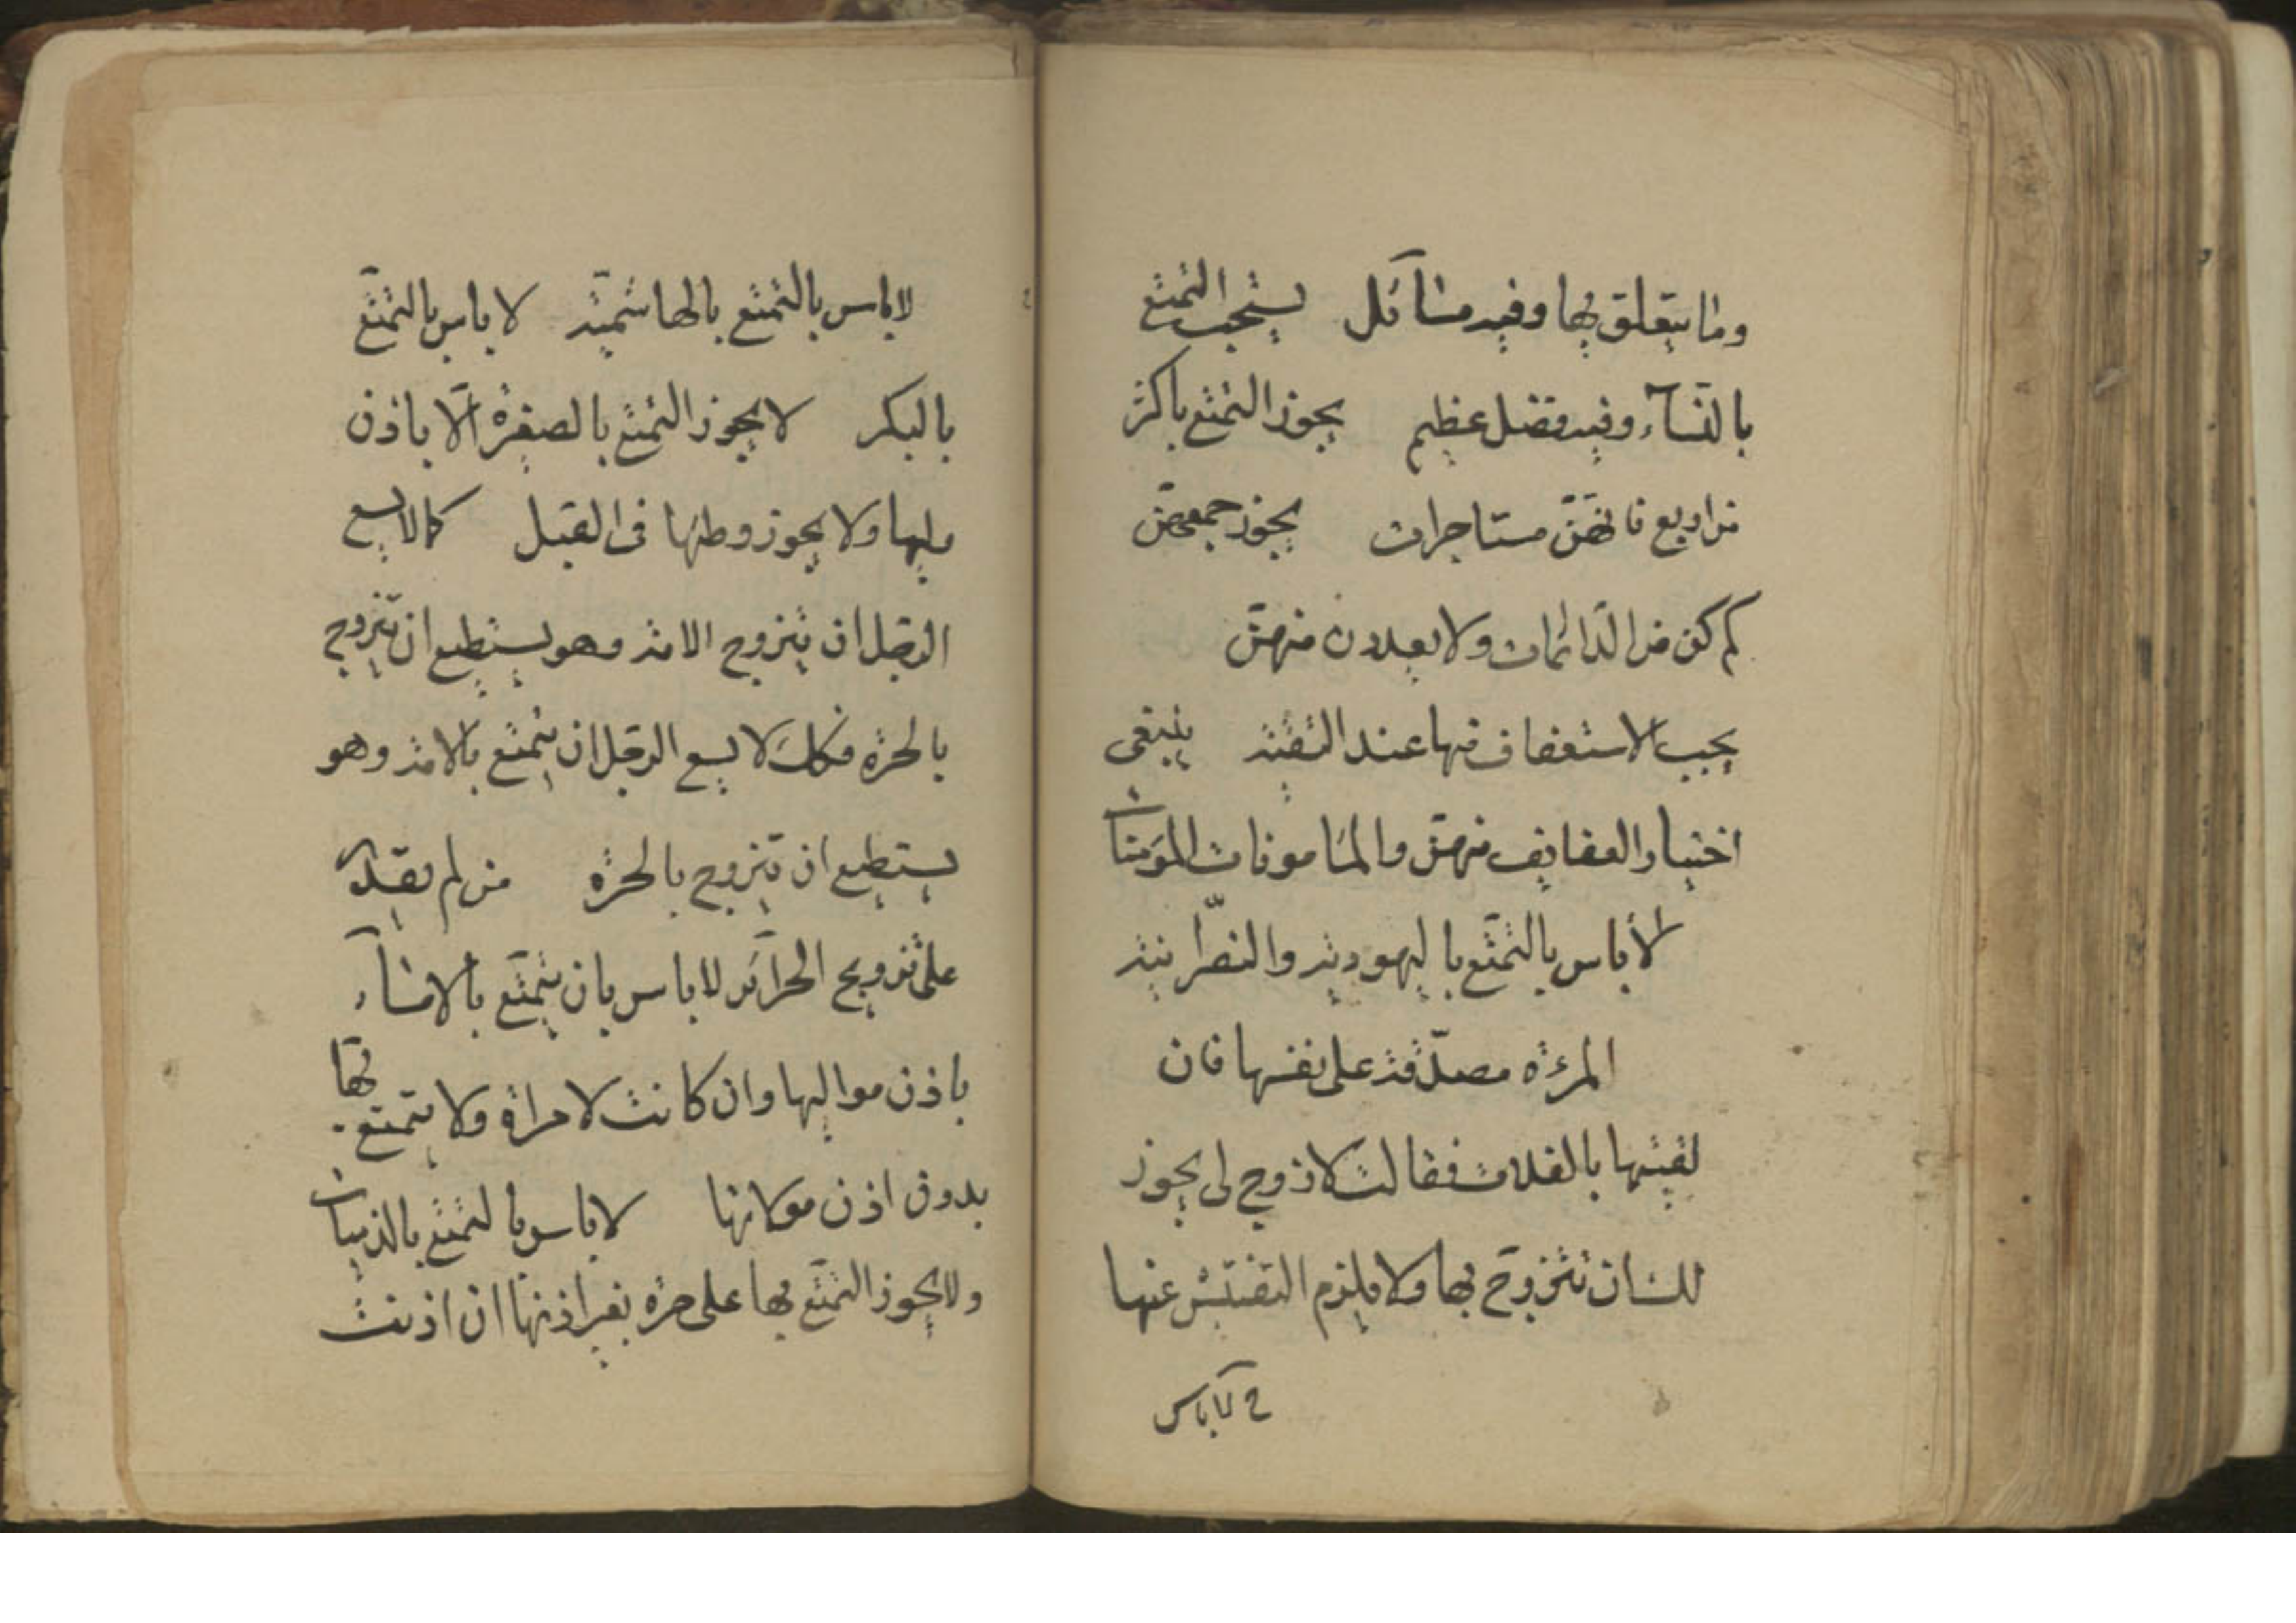 وما يتعلق بها وفيه مسائل يستحب التمتع
بالنسآء وفيه فضل عظيم يجوز التمتع باكثر
من اربع فانهنّ مستاجرات يجوز جمعهنّ
كم كن من الدائمات ولا يعددن منهنّ
يجب الاستعفاف منها عند التقية ينبغى
اختيار العفايف منهنّ والمامونات المؤمنات
لأباس بالتمتّع باليهودية والنصرانية
المرءة مصدّقة على نفسها فان
لقيتها بالفلات فقالت لا زوج لى يجوز
لك ان تتزوّج بها ولا يلزم التفتيش عنها
لاباس
لاباس بالتمتع بالهاشميّة لا باس بالتمتّع
بالبكر لا يجوز التمتع بالصغيرة الّا باذن
وليها ولا يجوز وطئها فى القبل كما لا يسع
الرجل ان يتزوج الامة وهو يستطيع ان يتزوج
بالحرة فكك لا يسع الرجل ان يتمتع بالامة وهو
يستطيع ان يتزوج بالحرة من لم يقدر
على تزويج الحرآئر لا باس بان يتمتّع بالامآء
باذن مواليها وان كانت لامراة ولا يتمتع بها
بدون اذن مولاتها لاباس بالتمتع بالذميات
ولا يجوز التمتّع بها على حرة بغير اذنها ان اذنت